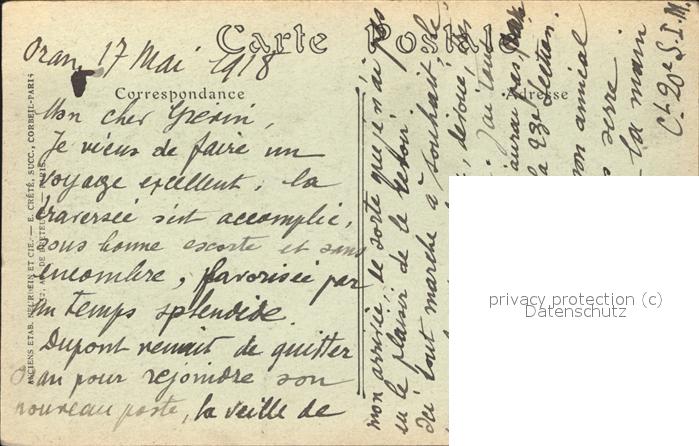 Carte Postale
Correspondance
Adresse
Oran, 17 Mai 1918
Mon cher
Je viens de faire un
voyage excellent ; la
traversée s'est accomplie,
sous bonne escorte et sans
encombre, favorisée par
un temps splendide.
Dupont venait de quitter
Oran pour rejoindre son
nouveau poste, la veille de
mon arrivée, de sorte que je n'ai pas
eu le plaisir de le revoir.
tout marche à souhait,
J'ai tout
aurai pas
la 23e Section.
mon amical
serre
la main
ANCIENS ETAB. NEURDEIN ET CIE. — E. CRÉTÉ, SUCC., CORBEIL-PARIS
privacy protection (c)
Datenschutz